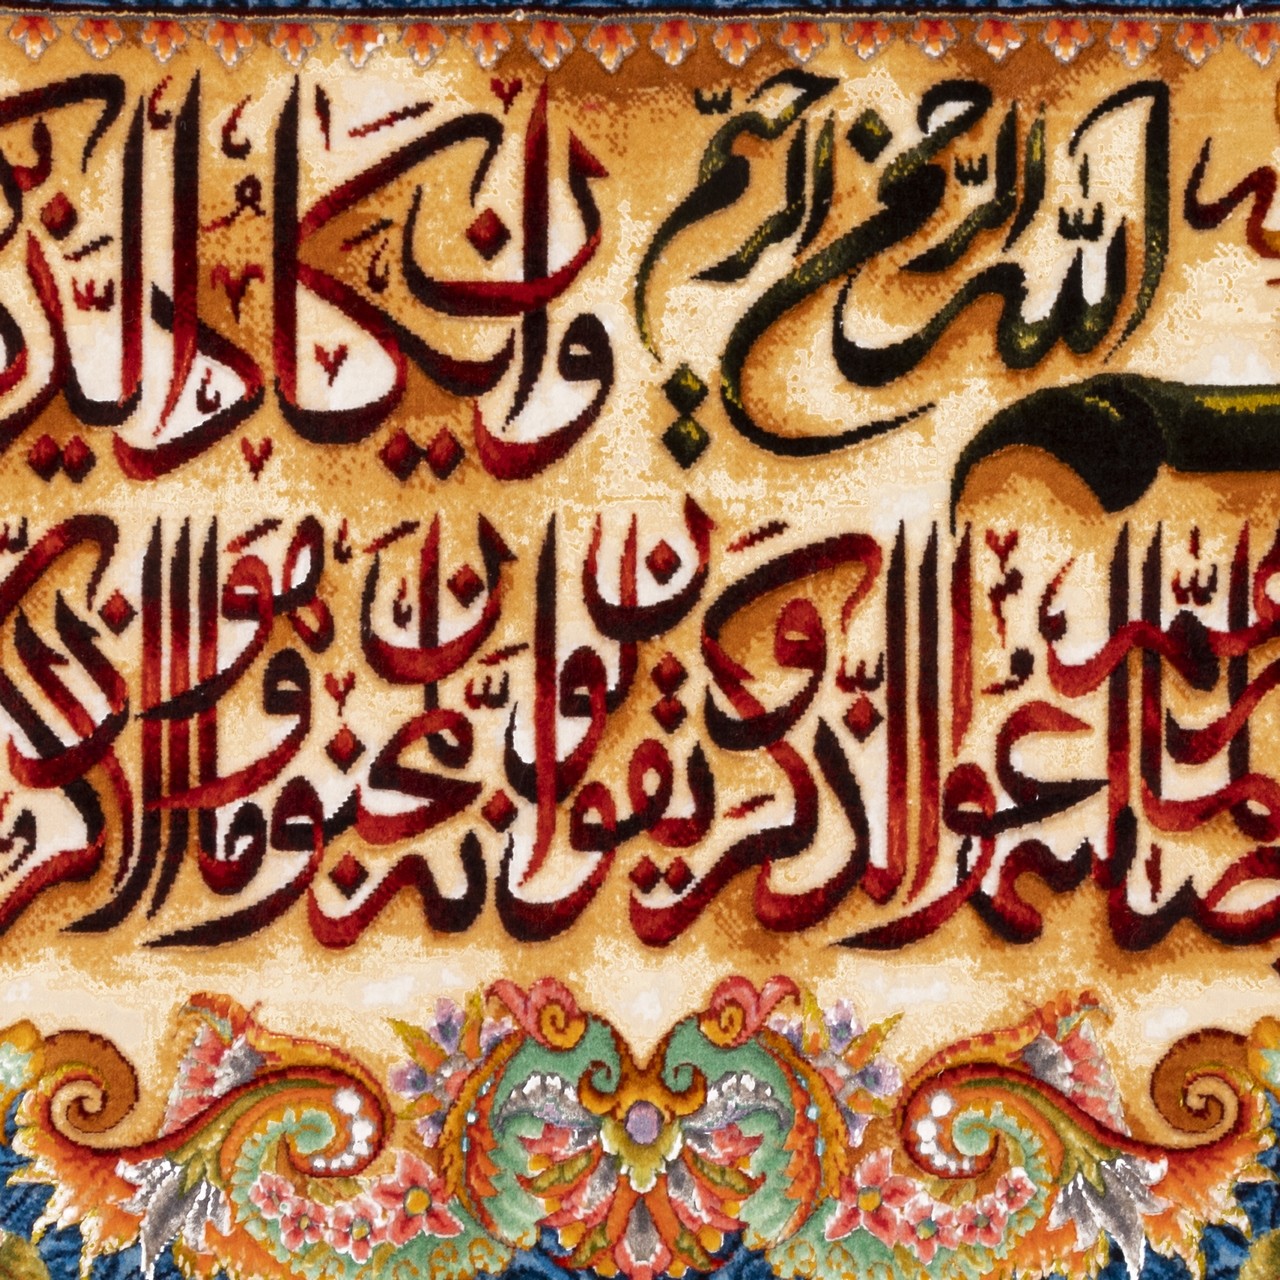 الله الرحمن الرحيم وان يكاد الذين
لما سمعوا الذكر ويقولون انه لمجنون وما هو الا ذكر